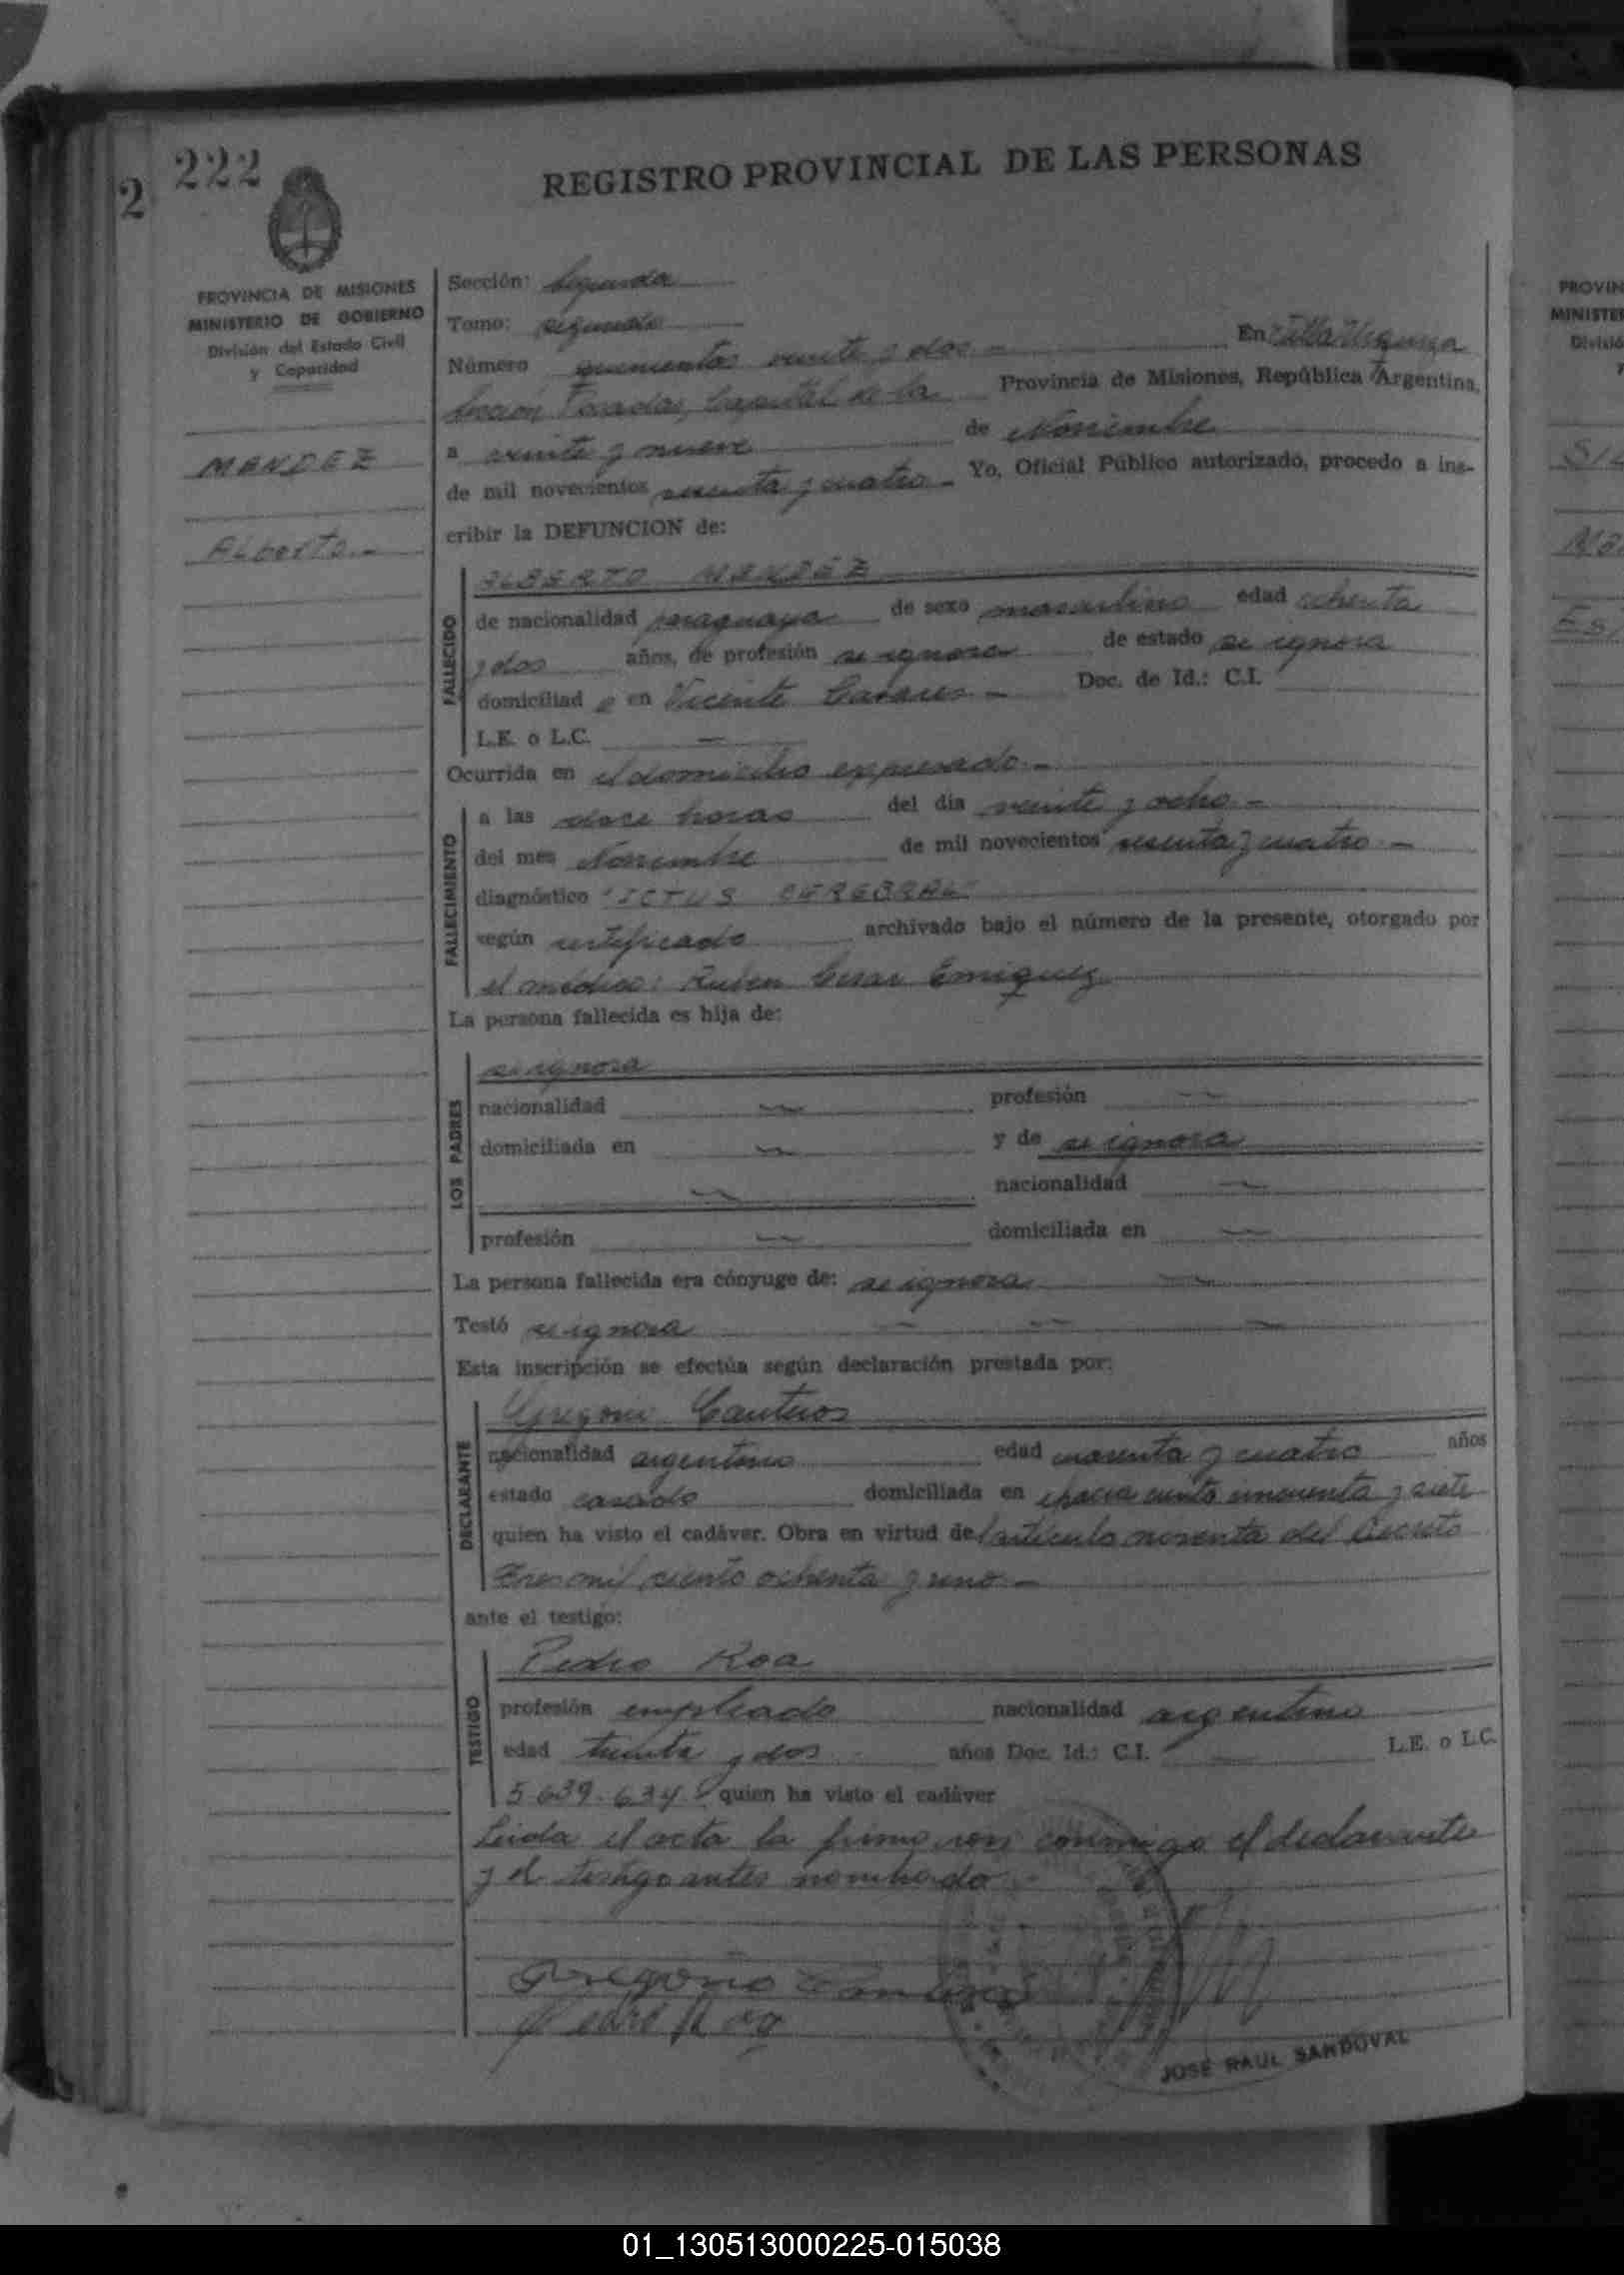 222
2
REGISTRO PROVINCIAL DE LAS PERSONAS
PROVINCIA DE MISIONES
MINISTERIO DE GOBIERNO
División del Estado Civil
y Capacidad
MENDEZ
Alberto.-
Sección: Segunda
Tomo: segundo
Número veinte y dos.- En Villa Urquiza
Sección Posadas, Capital de la Provincia de Misiones, República Argentina,
a veinte y nueve de Noviembre
de mil novecientos sesenta y cuatro.- Yo, Oficial Público autorizado, procedo a ins-
cribir la DEFUNCION de:
FALLECIDO
ALBERTO MENDEZ
de nacionalidad paraguaya de sexo masculino edad ochenta
y dos años, de profesión se ignora de estado se ignora
domiciliad o en Vicente Casares - Doc. de Id.: C.I.
L.E. o L.C. —
Ocurrida en el domicilio expresado.-
FALLECIMIENTO
a las doce horas del día veinte y ocho.-
del mes Noviembre de mil novecientos sesenta y cuatro.-
diagnóstico "ICTUS CEREBRAL"
según certificado archivado bajo el número de la presente, otorgado por
el médico: Ruben Cesar Enriquez
La persona fallecida es hija de:
LOS PADRES
se ignora
nacionalidad — profesión —
domiciliada en — y de se ignora
— nacionalidad —
profesión — domiciliada en —
La persona fallecida era cónyuge de: se ignora —
Testó se ignora — — —
Esta inscripción se efectúa según declaración prestada por:
DECLARANTE
Gregorio Canteros
nacionalidad argentino edad cuarenta y cuatro años
estado casado domiciliada en chacra ciento cincuenta y siete
quien ha visto el cadáver. Obra en virtud del artículo noventa del Decreto
Tres mil ciento ochenta y uno.-
ante el testigo:
TESTIGO
Pedro Roa
profesión empleado nacionalidad argentino
edad treinta y dos años Doc. Id.: C.I. — L.E. o L.C.
5.639.634 quien ha visto el cadáver
Leida el acta la firmaron conmigo el declarante
y el testigo antes nombrado
Gregorio Canteros
Pedro Roa
JOSE RAUL SANDOVAL
PROVIN
MINISTE
Divisió
01_130513000225-015038